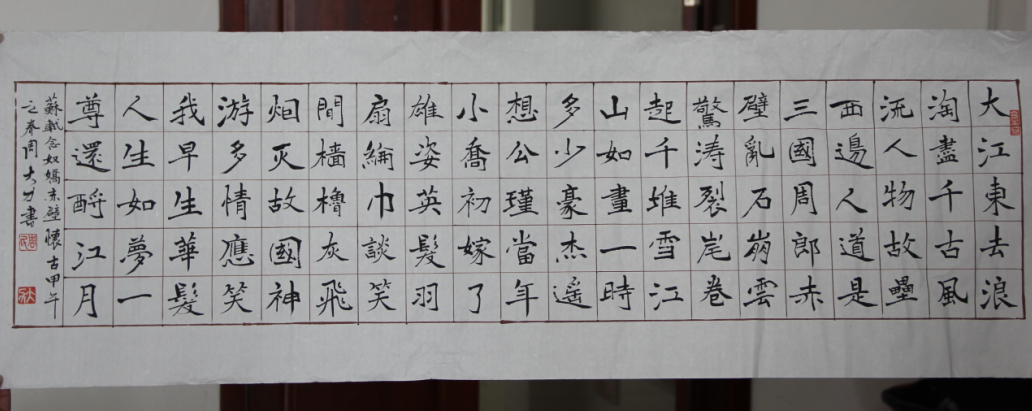 大江東去浪
淘盡千古風
流人物故壘
西邊人道是
三國周郎赤
壁亂石崩雲
驚涛裂岸卷
起千堆雪江
山如畫一時
多少豪杰遥
想公瑾當年
小喬初嫁了
雄姿英髮羽
扇綸巾談笑
間檣櫓灰飛
烟灭故國神
游多情應笑
我早生華髮
人生如夢一
尊還酹江月
蘇軾念奴嬌赤壁懷古甲午
之春周大力書